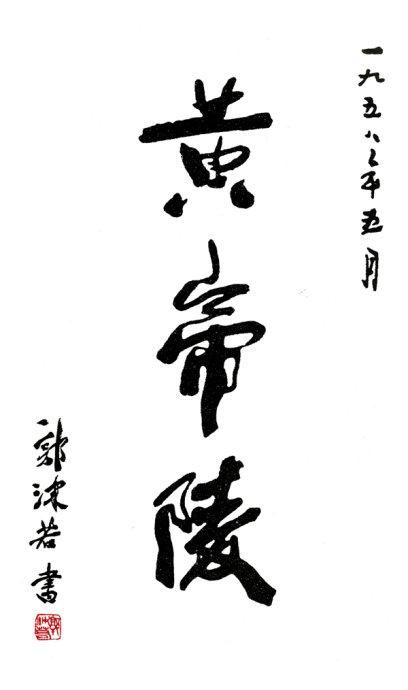 一九五八年五月
黄帝陵
郭沫若书